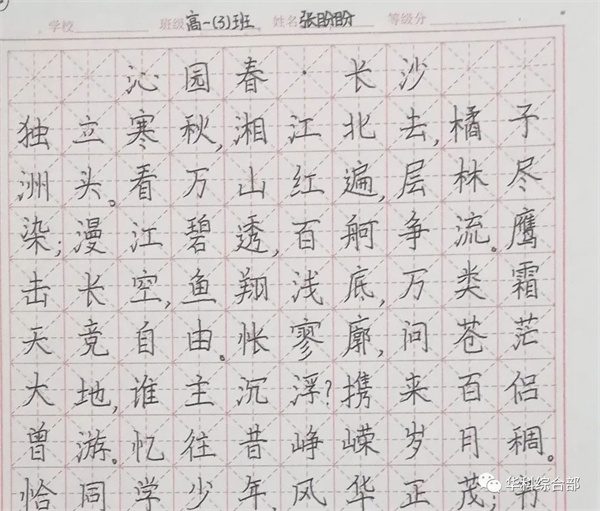 学校 班级 高一(3)班 姓名 张盼盼 等级分
沁园春·长沙
独立寒秋,湘江北去,橘子
洲头。看万山红遍,层林尽
染;漫江碧透,百舸争流。鹰
击长空,鱼翔浅底,万类霜
天竞自由。怅寥廓,问苍茫
大地,谁主沉浮?携来百侣
曾游。忆往昔峥嵘岁月稠。
恰同学少年,风华正茂;书
华科综合部